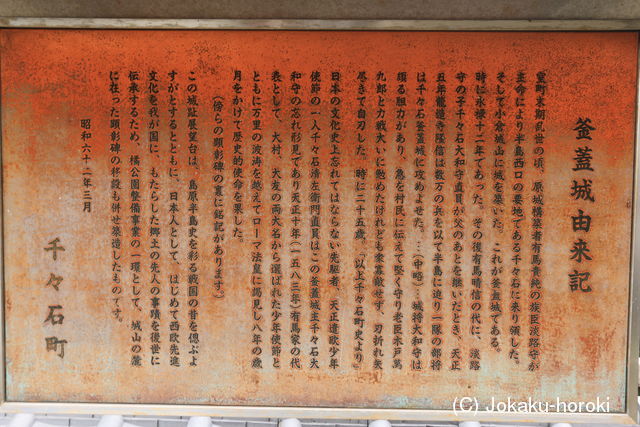 釜蓋城由来記
室町末期乱世の頃、原城構築者有馬貴純の族臣淡路守が
主命により半島西口の要地である千々石に来り領した。
そして小倉城山に城を築いた。これが釜蓋城である。
時に永禄十二年であった。その後有馬晴信の代に、淡路
守の子千々石大和守直員が父のあとを継いだとき、天正
五年龍造寺隆信は数万の兵を以て半島に迫り一隊の部将
は千々石釜蓋城に攻めよせた。…(中略) 城将大和守は
頗る胆力があり、急を村民に伝えて堅く守り老臣木戸萬
九郎と力戦大いに勉めたけれども衆寡敵せず、刃折れ矢
尽きて自刃した。時に二十五歳。(以上千々石町史より)
日本の文化史上忘れてはならない先駆者、天正遣欧少年
使節の一人千々石清左衛門直員はこの釜蓋城主千々石大
和守の忘れ形見であり天正十年(一五八三年)有馬家の代
表として、大村、大友の両大名から選ばれた少年使節と
ともに万里の波涛を越えてローマ法皇に謁見し八年の歳
月をかけて歴史的使命を果した。
(傍らの顕彰碑の裏に銘記があります。)
この城趾展望台は、島原半島史を彩る戦国の昔を偲ぶよ
すがとするとともに、日本人として、はじめて西欧先進
文化を我が国に、もたらした郷土の先人の事蹟を後世に
伝承するため、橘公園整備事業の一環として、城山の麓
に在った顕彰碑の移設も併せ築造したものです。
昭和六十二年三月
千々石町
(C) Jokaku-horoki